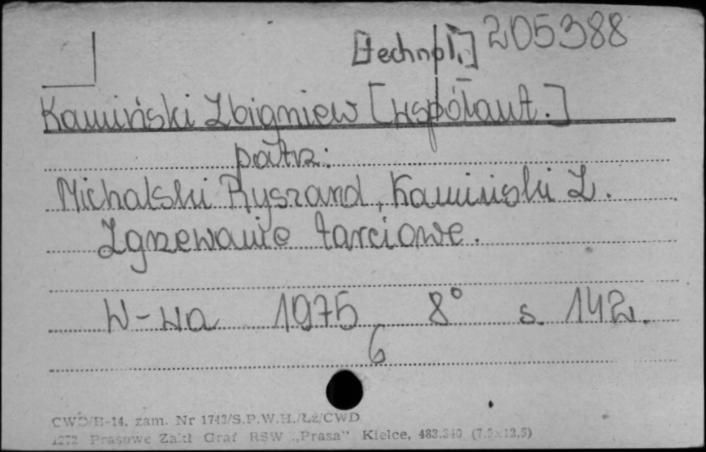 [technol.] 205388
Kamiński Zbigniew [współaut.]
patrz:
Michalski Ryszard, Kamiński Z.
Zgrzewanie tarciowe.
W-wa 1975 8° s. 142.
6
CWD/B-14. zam. Nr 1742/S.P.W.H./Łź/CWD
Prasowe Zakł Graf RSW „Prasa” Kielce, 483.340 (7.5x12.5)